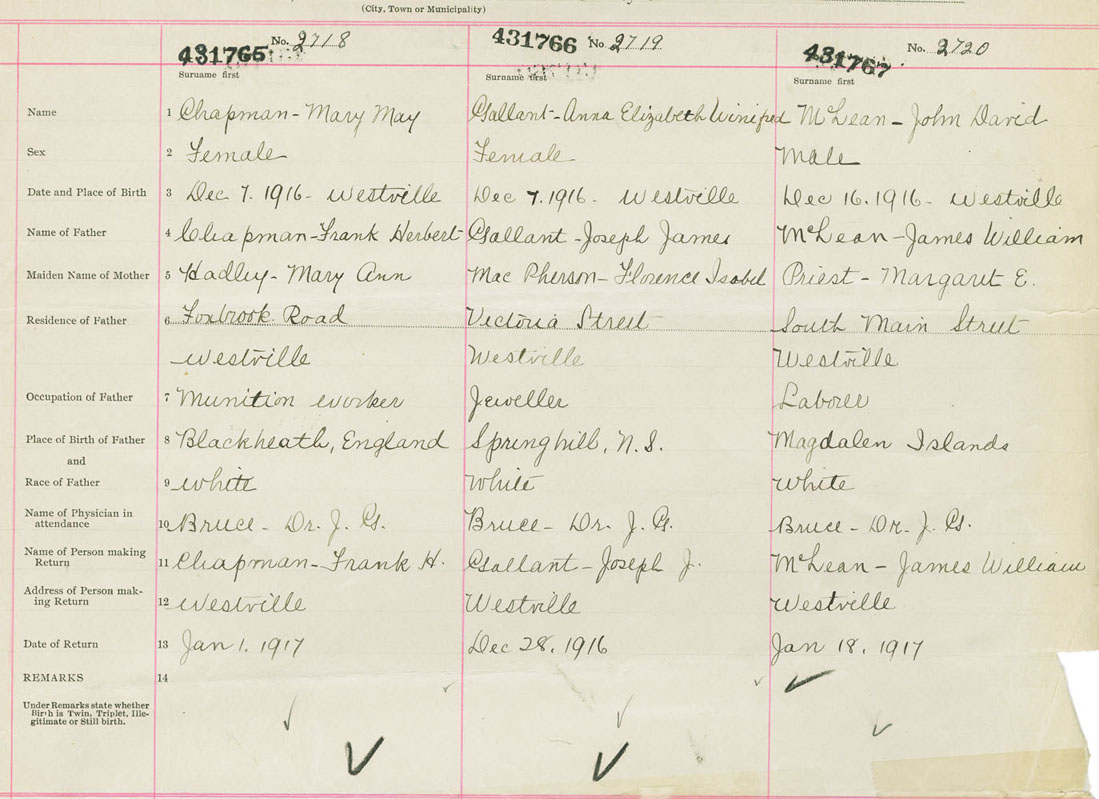 (City, Town or Municipality)
431765 No. 2718 431766 No. 2719 431767 No. 2720
Surname first Surname first Surname first
Name 1 Chapman - Mary May Gallant - Anna Elizabeth Winifred McLean - John David
Sex 2 Female Female Male
Date and Place of Birth 3 Dec 7. 1916 - Westville Dec 7. 1916 - Westville Dec 16. 1916 - Westville
Name of Father 4 Chapman - Frank Herbert Gallant - Joseph James McLean - James William
Maiden Name of Mother 5 Hadley - Mary Ann Mac Pherson - Florence Isobel Priest - Margaret E.
Residence of Father 6 Foxbrook Road Victoria Street South Main Street
Westville Westville Westville
Occupation of Father 7 Munition worker Jeweller Laborer
Place of Birth of Father 8 Blackheath, England Springhill, N.S. Magdalen Islands
and
Race of Father 9 White White White
Name of Physician in
attendance 10 Bruce - Dr. J. G. Bruce - Dr. J. G. Bruce - Dr. J. G.
Name of Person making
Return 11 Chapman - Frank H. Gallant - Joseph J. McLean - James William
Address of Person mak-
ing Return 12 Westville Westville Westville
Date of Return 13 Jan 1. 1917 Dec 28, 1916 Jan 18, 1917
REMARKS 14
Under Remarks state whether
Birth is Twin, Triplet, Ille-
gitimate or Still birth.